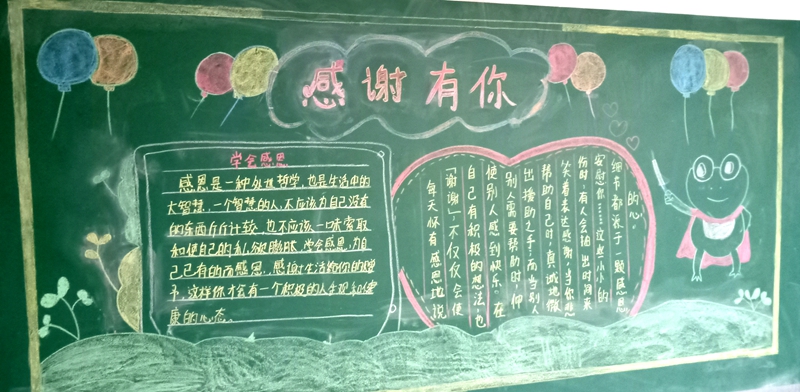 感谢有你
学会感恩
感恩是一种处世哲学，也是生活中的
大智慧。一个智慧的人，不应该为自己没有
的东西斤斤计较，也不应该一味索取
和使自己的私欲膨胀。学会感恩，为自
己已有的而感恩，感谢生活给你的赠
予，这样你才会有一个积极的人生观和健
康的心态。
每天怀有感恩地说
「谢谢」不仅仅会使
自己有积极的想法，也
使别人感到快乐。在
别人需要帮助的时，伸
出援助之手；而当别人
帮助自己时，真诚地微
笑着表达感谢；当你悲
伤时，有人会抽出时间来
安慰你……这些小小的
细节都源于一颗感恩
的心。